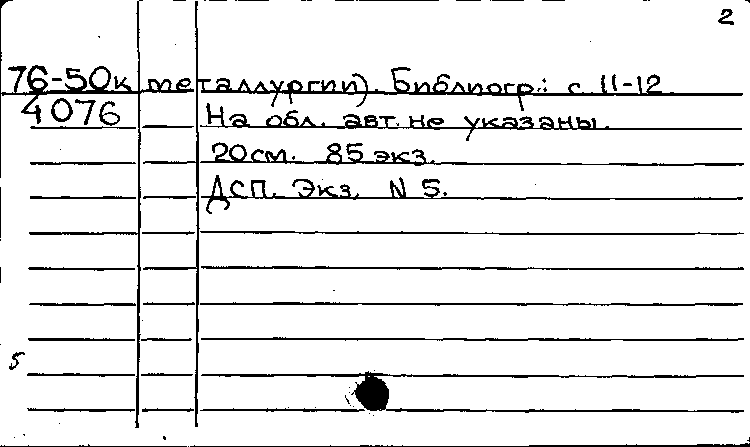 2
76-50к металлургии). Библиогр.: с. 11-12.
4076 На обл. авт. не указаны.
20см. 85 экз.
ДСП. Экз. N 5.
5